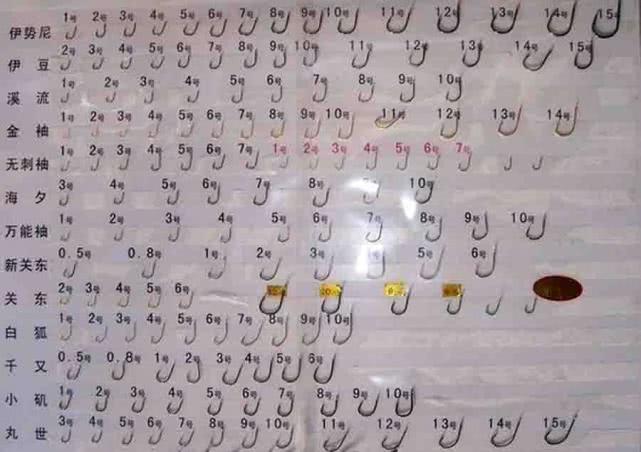 伊势尼 1号 2号 3号 4号 5号 6号 7号 8号 9号 10号 11号 12号 13号 14号 15号
伊豆 2号 3号 4号 5号 6号 7号 8号 9号 10号 11号 12号 13号 14号 15号
溪流 1号 2号 3号 4号 5号 6号 7号 8号 9号 10号
金袖 1号 2号 3号 4号 5号 6号 7号 8号 9号 10号 11号 12号 13号 14号
无刺袖 1号 2号 3号 4号 5号 6号 7号 1号 2号 3号 4号 5号 6号 7号
海夕 3号 4号 5号 6号 7号 8号 9号 10号
万能袖 1号 2号 3号 4号 5号 6号 7号 8号 9号 10号
新关东 0.5号 0.8号 1号 2号 3号 5号 6号
关东 2号 3号 4号 5号 6号
白狐 1号 2号 3号 4号 5号 6号 7号 8号 9号 10号
千又 0.5号 0.8号 1号 2号 3号 4号 5号 6号
小矶 1号 2号 3号 4号 5号 6号 7号 8号 9号 10号
丸世 3号 4号 5号 6号 7号 8号 9号 10号 11号 12号 13号 14号 15号